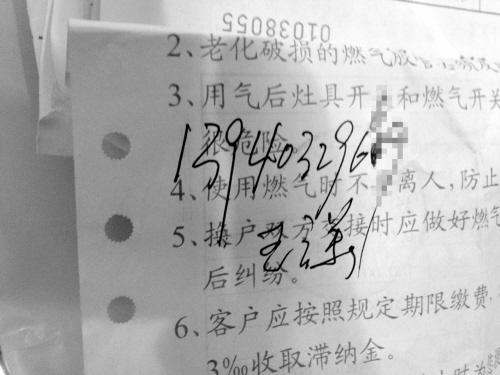 01038055
2、老化破损的燃气
3、用气后灶具开 和燃气开关
很危险。
139403296
4、使用燃气时不 离人,防止
5、换户双方 接时应做好燃气
后纠纷。
6、客户应按照规定期限缴费,
3‰收取滞纳金。